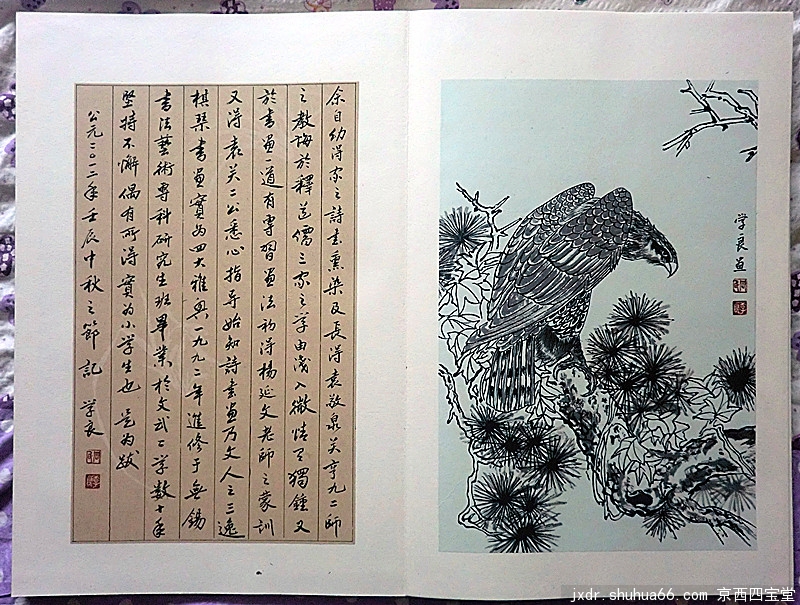 余自幼得家之詩書熏染及長得袁敬泉关亨九二師
之教诲於釋道儒三家之学由浅入微情有獨鍾又
於書画一道有專習画法初得楊延文老師之蒙訓
又得袁关二公悉心指导始知詩書画乃文人之三逸
棋琴書画實为四大雅興一九九二年進修于無錫
書法藝術專科研究生班畢業於文武二学数十年
坚持不懈偶有所得實为小学生也是为跋
公元二〇一二年壬辰中秋之節記 学良
学良画
jxdr.shuhua66.com 京西四宝堂